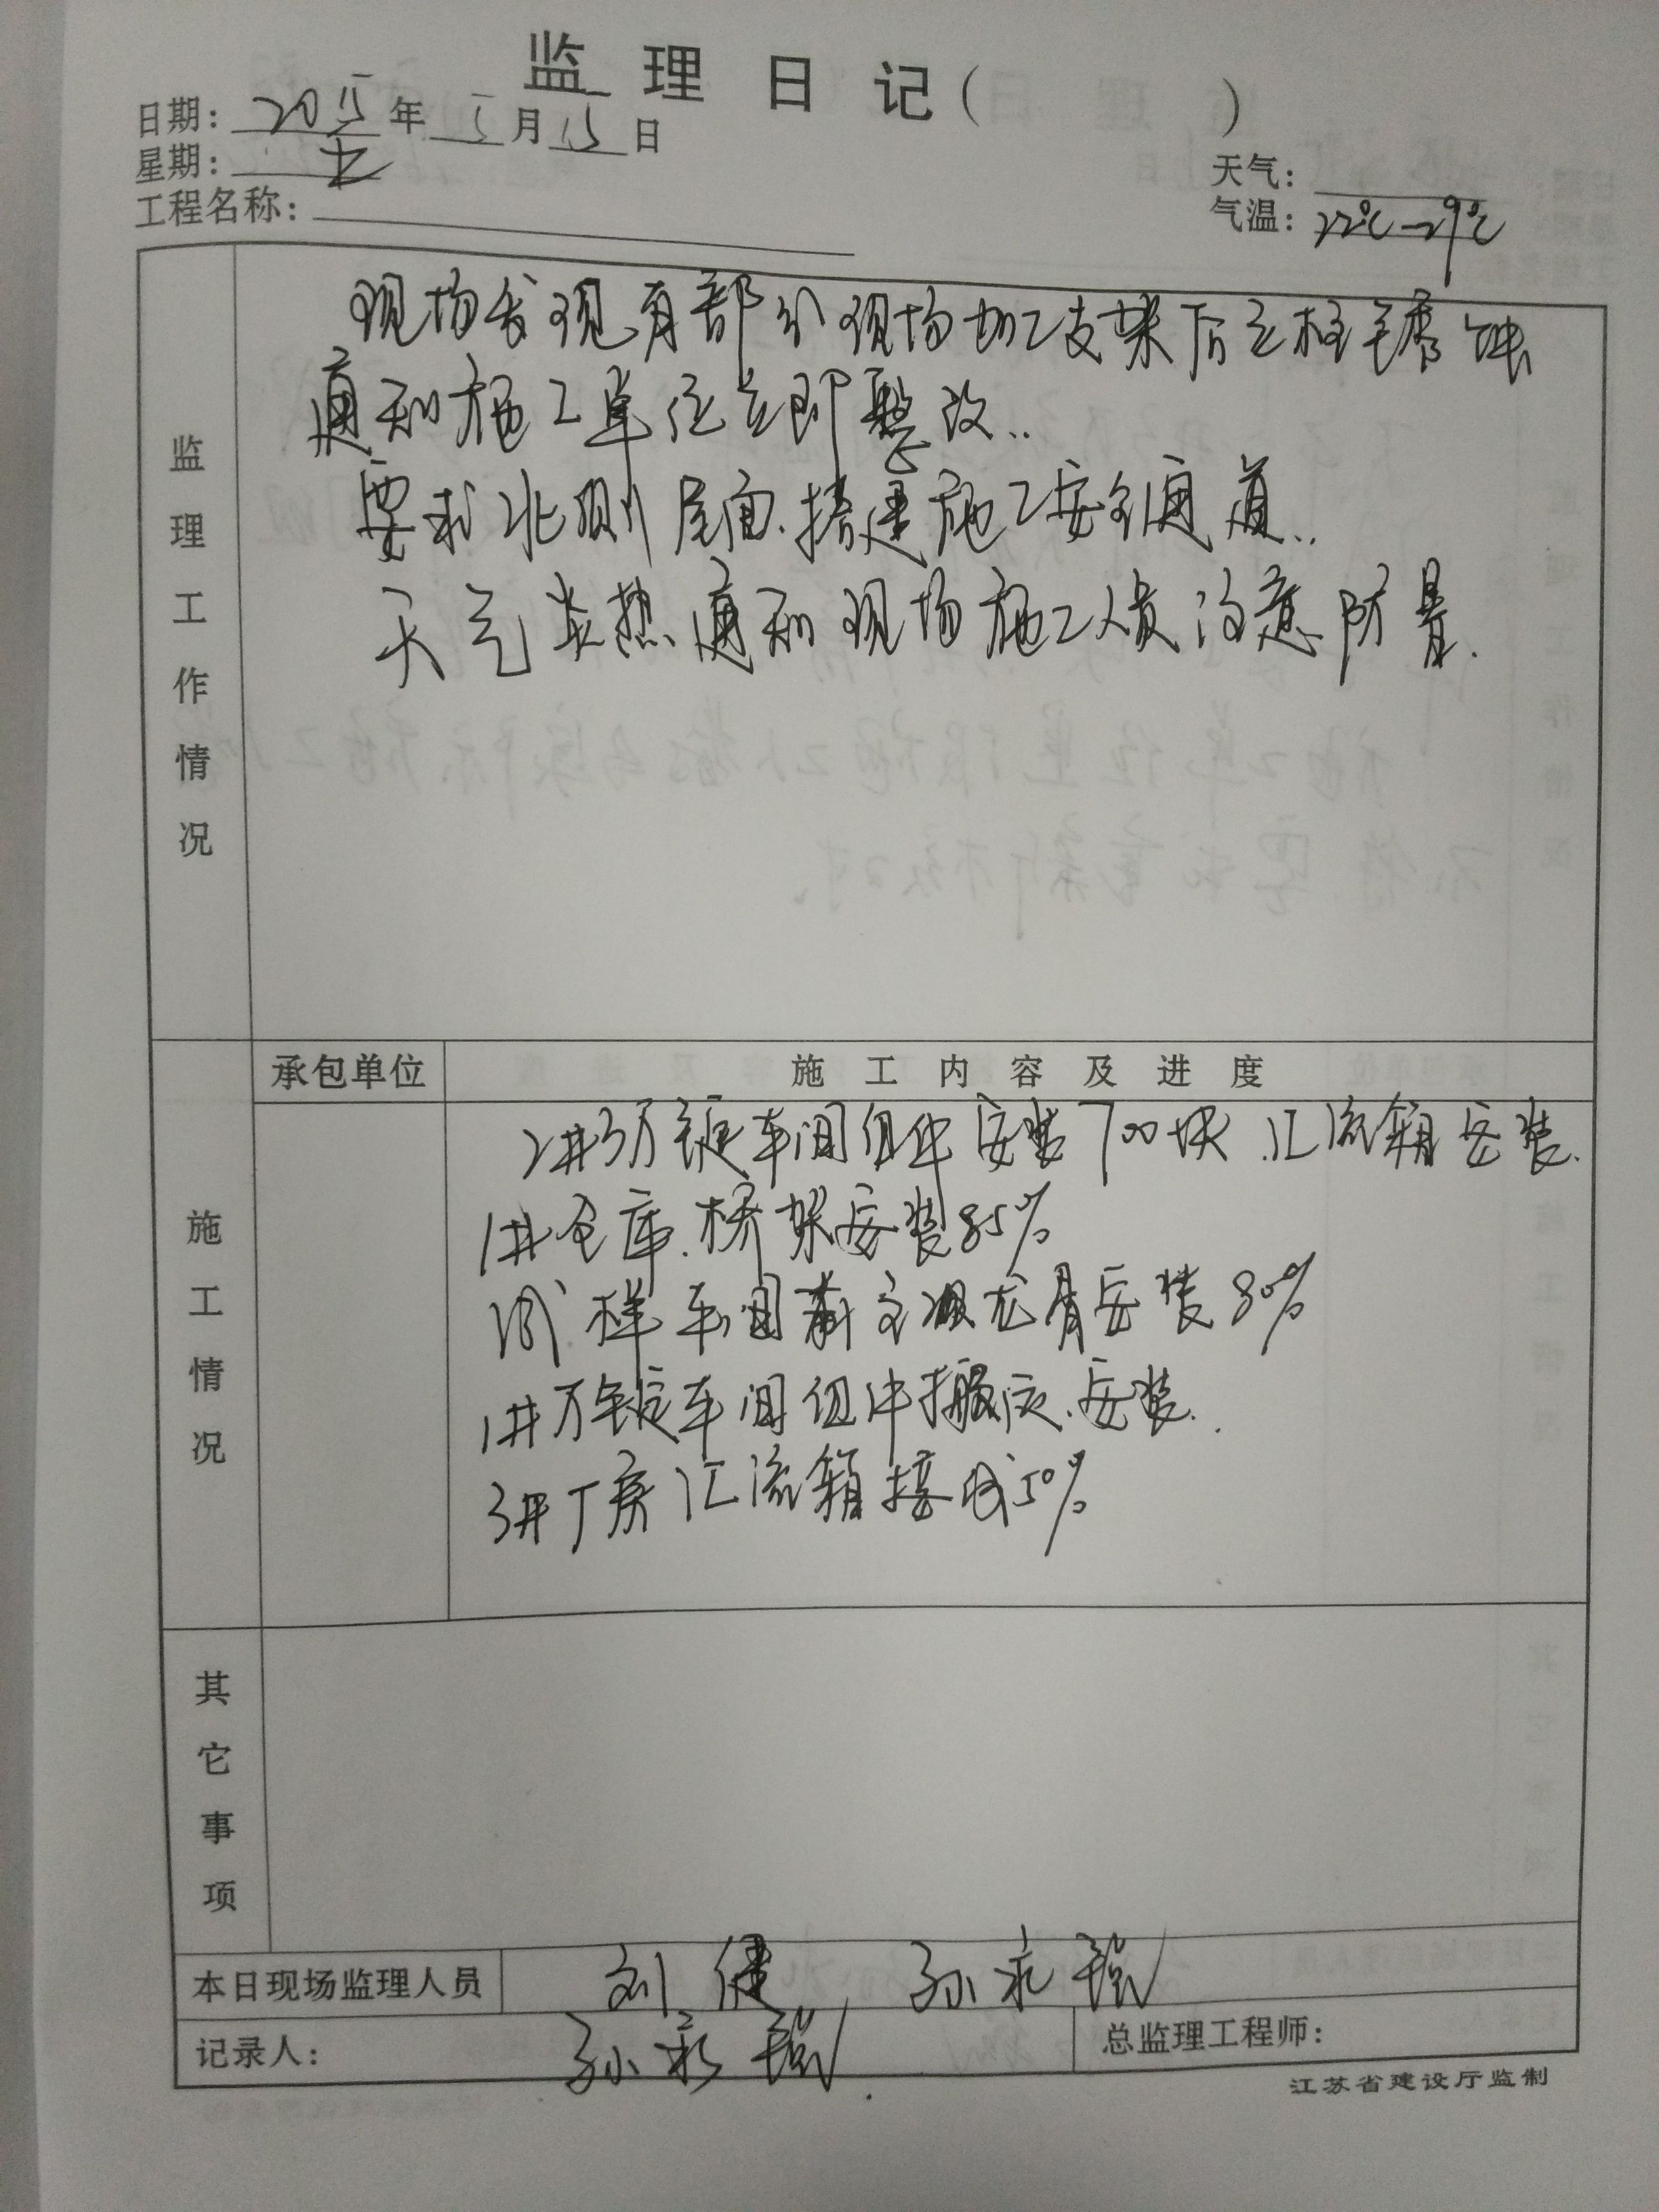 监理日记( )
日期: 2015年5月15日
星期: 五
天气:
气温: 22℃-29℃
工程名称:
监理工作情况
现场发现有部分现场加工支架后立柱
通知施工单位立即整改..
要求北侧屋面.搭建施工安全通道..
天气炎热.通知现场施工人员注意防暑.
施工情况
承包单位 施工内容及进度
2#3万锭车间组件安装700块.汇流箱安装.
1#仓库.桥架安装85%
样车间 龙骨安装80%
1#万锭车间组件搬运.安装.
3#厂房汇流箱接线50%
其它事项
本日现场监理人员 刘健 孙永
记录人: 孙永
总监理工程师:
江苏省建设厅监制